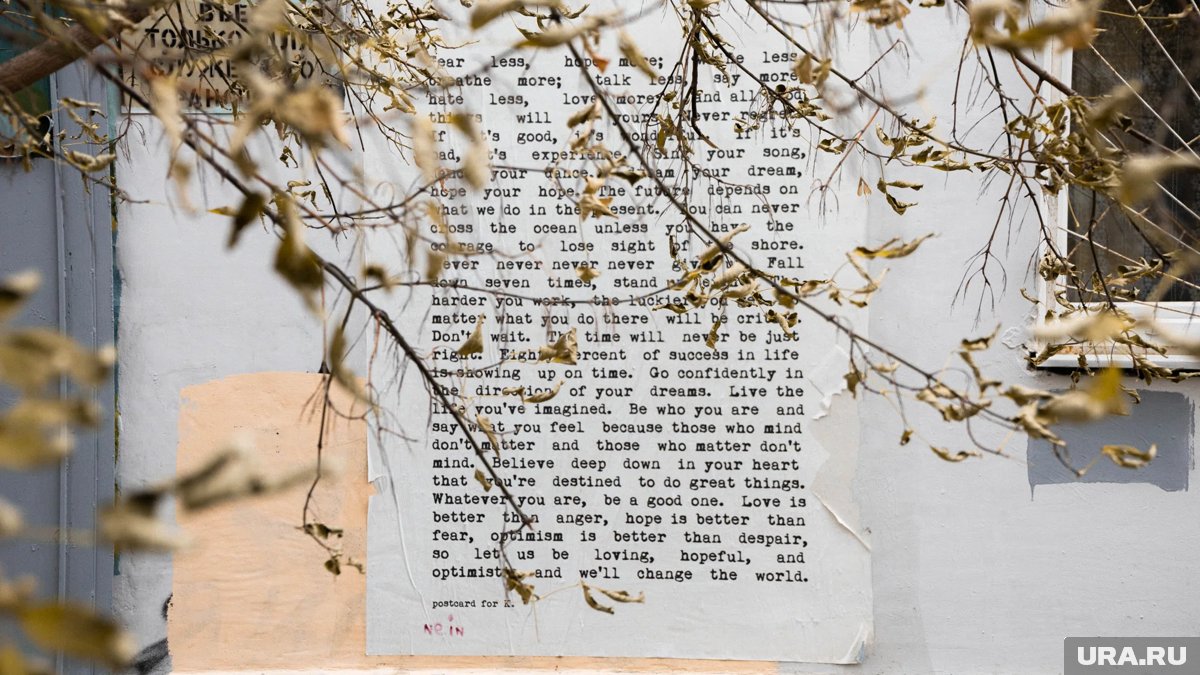 ВЪЕ
ТОЛЬКО
less, hope more; less
breathe more; talk less, say more
hate less, love more; and all good
will yours Never regret
If it's good, it's If it's
it's experience. Sing your song,
your dance. your dream,
hope your hope. The future depends on
what we do in the present. You can never
cross the ocean unless you have the
courage to lose sight of the shore.
never never never give Fall
down seven times, stand
harder you work, the luckier you
matter what you do there will be
Don't wait. The time will never be just
right. Eighty percent of success in life
is showing up on time. Go confidently in
the direction of your dreams. Live the
life you've imagined. Be who you are and
say what you feel because those who mind
don't matter and those who matter don't
mind. Believe deep down in your heart
that you're destined to do great things.
Whatever you are, be a good one. Love is
better than anger, hope is better than
fear, optimism is better than despair,
so let us be loving, hopeful, and
optimistic and we'll change the world.
postcard for K.
Nein
URA.RU